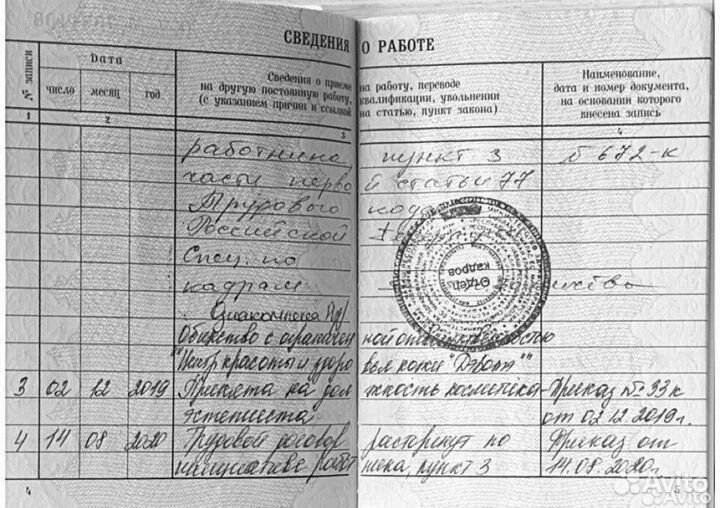 СВЕДЕНИЯ О РАБОТЕ
№ записи
Дата
число месяц год
Сведения о приеме на работу, переводе
на другую постоянную работу, квалификации, увольнении
(с указанием причин и ссылкой на статью, пункт закона)
Наименование,
дата и номер документа,
на основании которого
внесена запись
1 2 3 4
работника, пункт 3 б 672-к
части первой статьи 77
Трудового
Российской
Спец. по
кадрам
Общество с ограниченной
"Центр красоты и здоровья кожи
3 02 12 2019 Принята на должность косметика- Приказ № 93к
эстетиста от 02.12.2019г.
4 14 08 2020 Трудовой договор расторгнут по Приказ от
инициативе работника, пункт 3 14.08.2020г.
Отдел
кадров
4 5
Avito